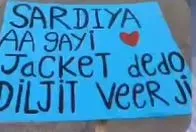 SARDIYA
AA GAYi
JACKET dEDO
DILJIT VEER JI